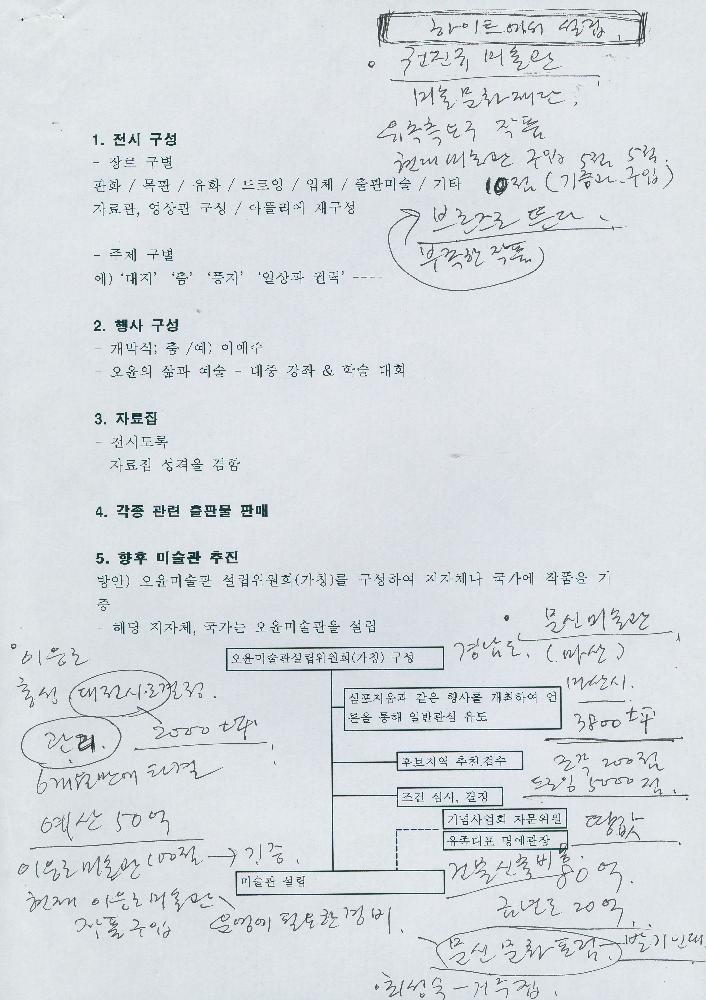 하이트에서 설립
권진규 미술관
미술문화재단,
유족측 요구 작품
현대미술관 구입 5점 5점.
10점 (기증과 구입)
브론즈로 뜬다.
부족한 작품
1. 전시 구성
- 장르 구별
판화 / 목판 / 유화 / 드로잉 / 입체 / 출판미술 / 기타
자료관, 영상관 구성 / 아뜰리에 재구성
- 주제 구별
예) '대지' '춤' '풍자' '일상과 권력' ----
2. 행사 구성
- 개막식; 춤 /예) 이애주
- 오윤의 삶과 예술 - 대중 강좌 & 학술 대회
3. 자료집
- 전시도록
자료집 성격을 겸함
4. 각종 관련 출판물 판매
5. 향후 미술관 추진
방안) 오윤미술관 설립위원회(가칭)를 구성하여 지자체나 국가에 작품을 기
증
- 해당 지자체, 국가는 오윤미술관을 설립
문신미술관
경남도. (마산)
마산시.
3800土平
조각 200점
드로잉 5000점.
땅값
건물신축비용 80억.
금년도 20억.
이응로
홍성 (대전시로 결정.
관리. 2000土平
6개월만에 타결
예산 50억
이응로미술관 100점 → 기증
현재 이응로미술관
작품구입 운영에 필요한 경비.
오윤미술관설립위원회(가칭) 구성
심포지움과 같은 행사를 개최하여 언
론을 통해 일반관심 유도
후보지역 추천.접수
조건 심사, 결정
기념사업회 자문위원
유족대표 명예관장
미술관 설립
문신 문화 포럼.
최성숙 -